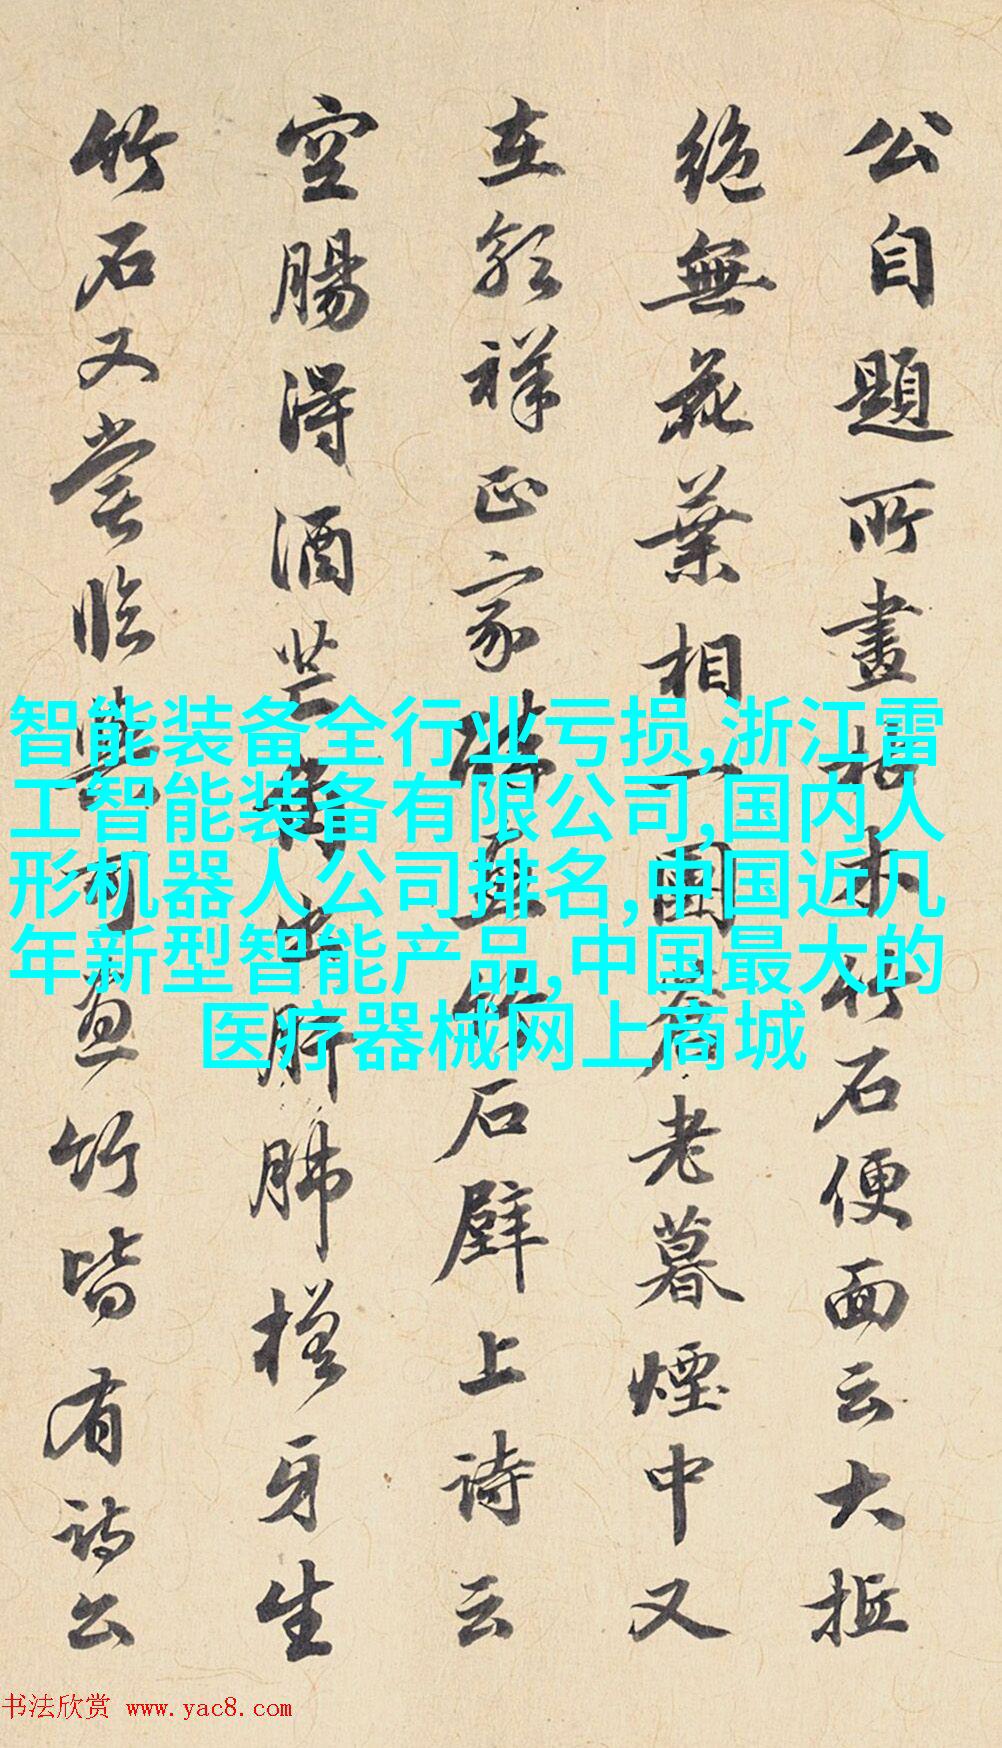 公自題所畫枯木竹石便面云大抵
絶無花葉相一團蒼老暮煙中又
在郭祥正家醉畫竹石壁上詩云
空腸得酒芒角出肝肺槎牙生
竹石又嘗臨與可畫竹皆有詩公
智能装备全行业亏损,浙江雷
工智能装备有限公司,国内人
形机器人公司排名,中国近几
年新型智能产品,中国最大的
医疗器械网上商城
书法欣赏 www.yac8.com